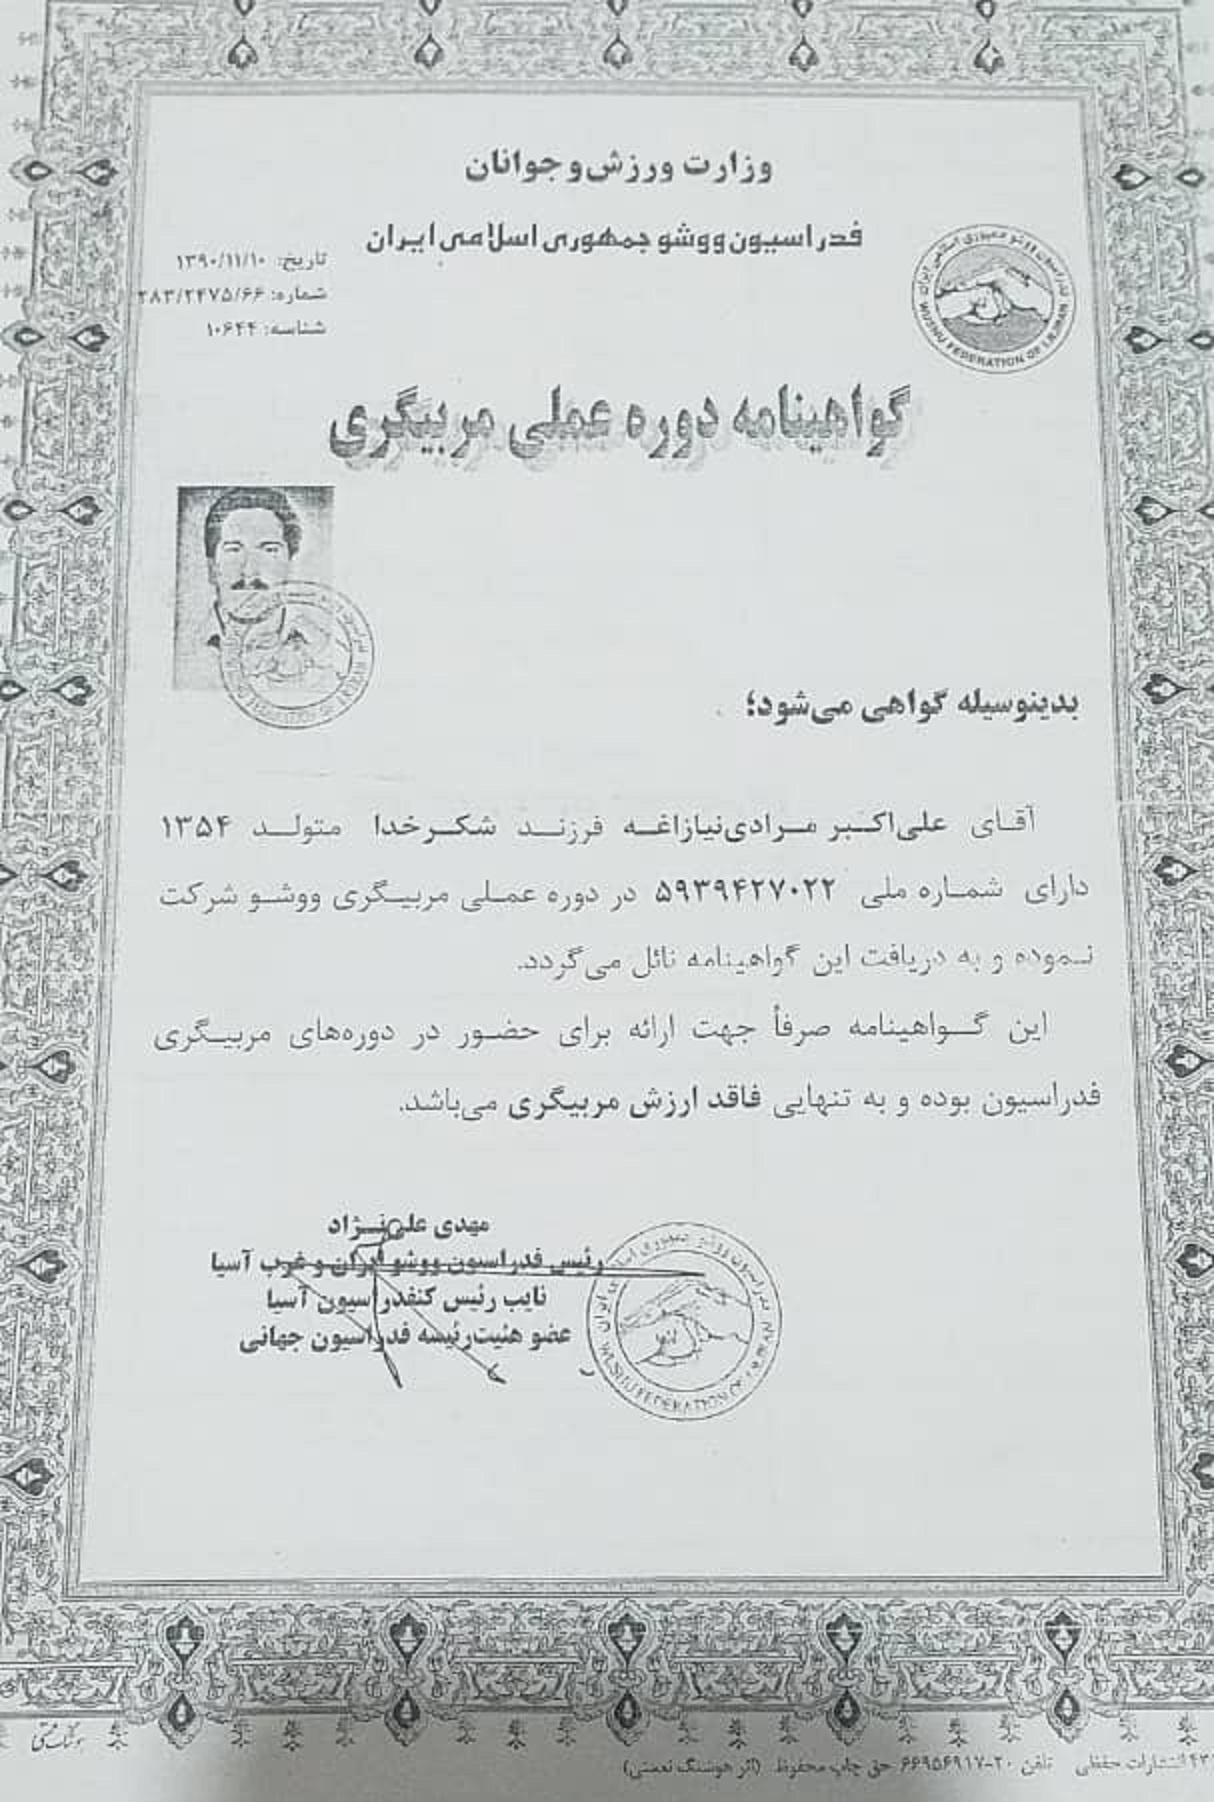 وزارت ورزش و جوانان
فدراسیون ووشو جمهوری اسلامی ایران
تاریخ: ۱۳۹۰/۱۱/۱۰
شماره: ۲۸۳/۲۴۷۵/۶۶
شناسه: ۱۰۶۴۴
WUSHU FEDERATION OF I.R.IRAN
گواهینامه دوره عملی مربیگری
بدینوسیله گواهی می‌شود؛
آقای علی‌اکبر مرادی‌نیازاغه فرزند شکرخدا متولد ۱۳۵۴
دارای شماره ملی ۵۹۳۹۴۲۷۰۲۲ در دوره عملی مربیگری ووشو شرکت
نموده و به دریافت این گواهینامه نائل می‌گردد.
این گواهینامه صرفاً جهت ارائه برای حضور در دوره‌های مربیگری
فدراسیون بوده و به تنهایی فاقد ارزش مربیگری می‌باشد.
مهدی علی‌نژاد
رئیس فدراسیون ووشو ایران و غرب آسیا
نایب رئیس کنفدراسیون آسیا
عضو هئیت‌رئیسه فدراسیون جهانی
انتشارات حفظی تلفن ۲۰-۶۶۹۵۶۹۱۷ حق چاپ محفوظ (اثر هوشنگ نعمتی)